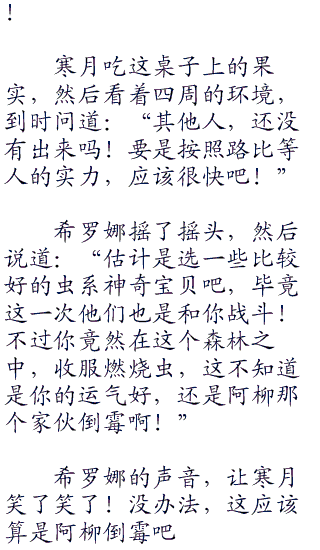 ！
寒月吃这桌子上的果
实，然后看着四周的环境，
到时问道：“其他人，还没
有出来吗！要是按照路比等
人的实力，应该很快吧！”
希罗娜摇了摇头，然后
说道：“估计是选一些比较
好的虫系神奇宝贝吧，毕竟
这一次他们也是和你战斗！
不过你竟然在这个森林之
中，收服燃烧虫，这不知道
是你的运气好，还是阿柳那
个家伙倒霉啊！”
希罗娜的声音，让寒月
笑了笑了！没办法，这应该
算是阿柳倒霉吧